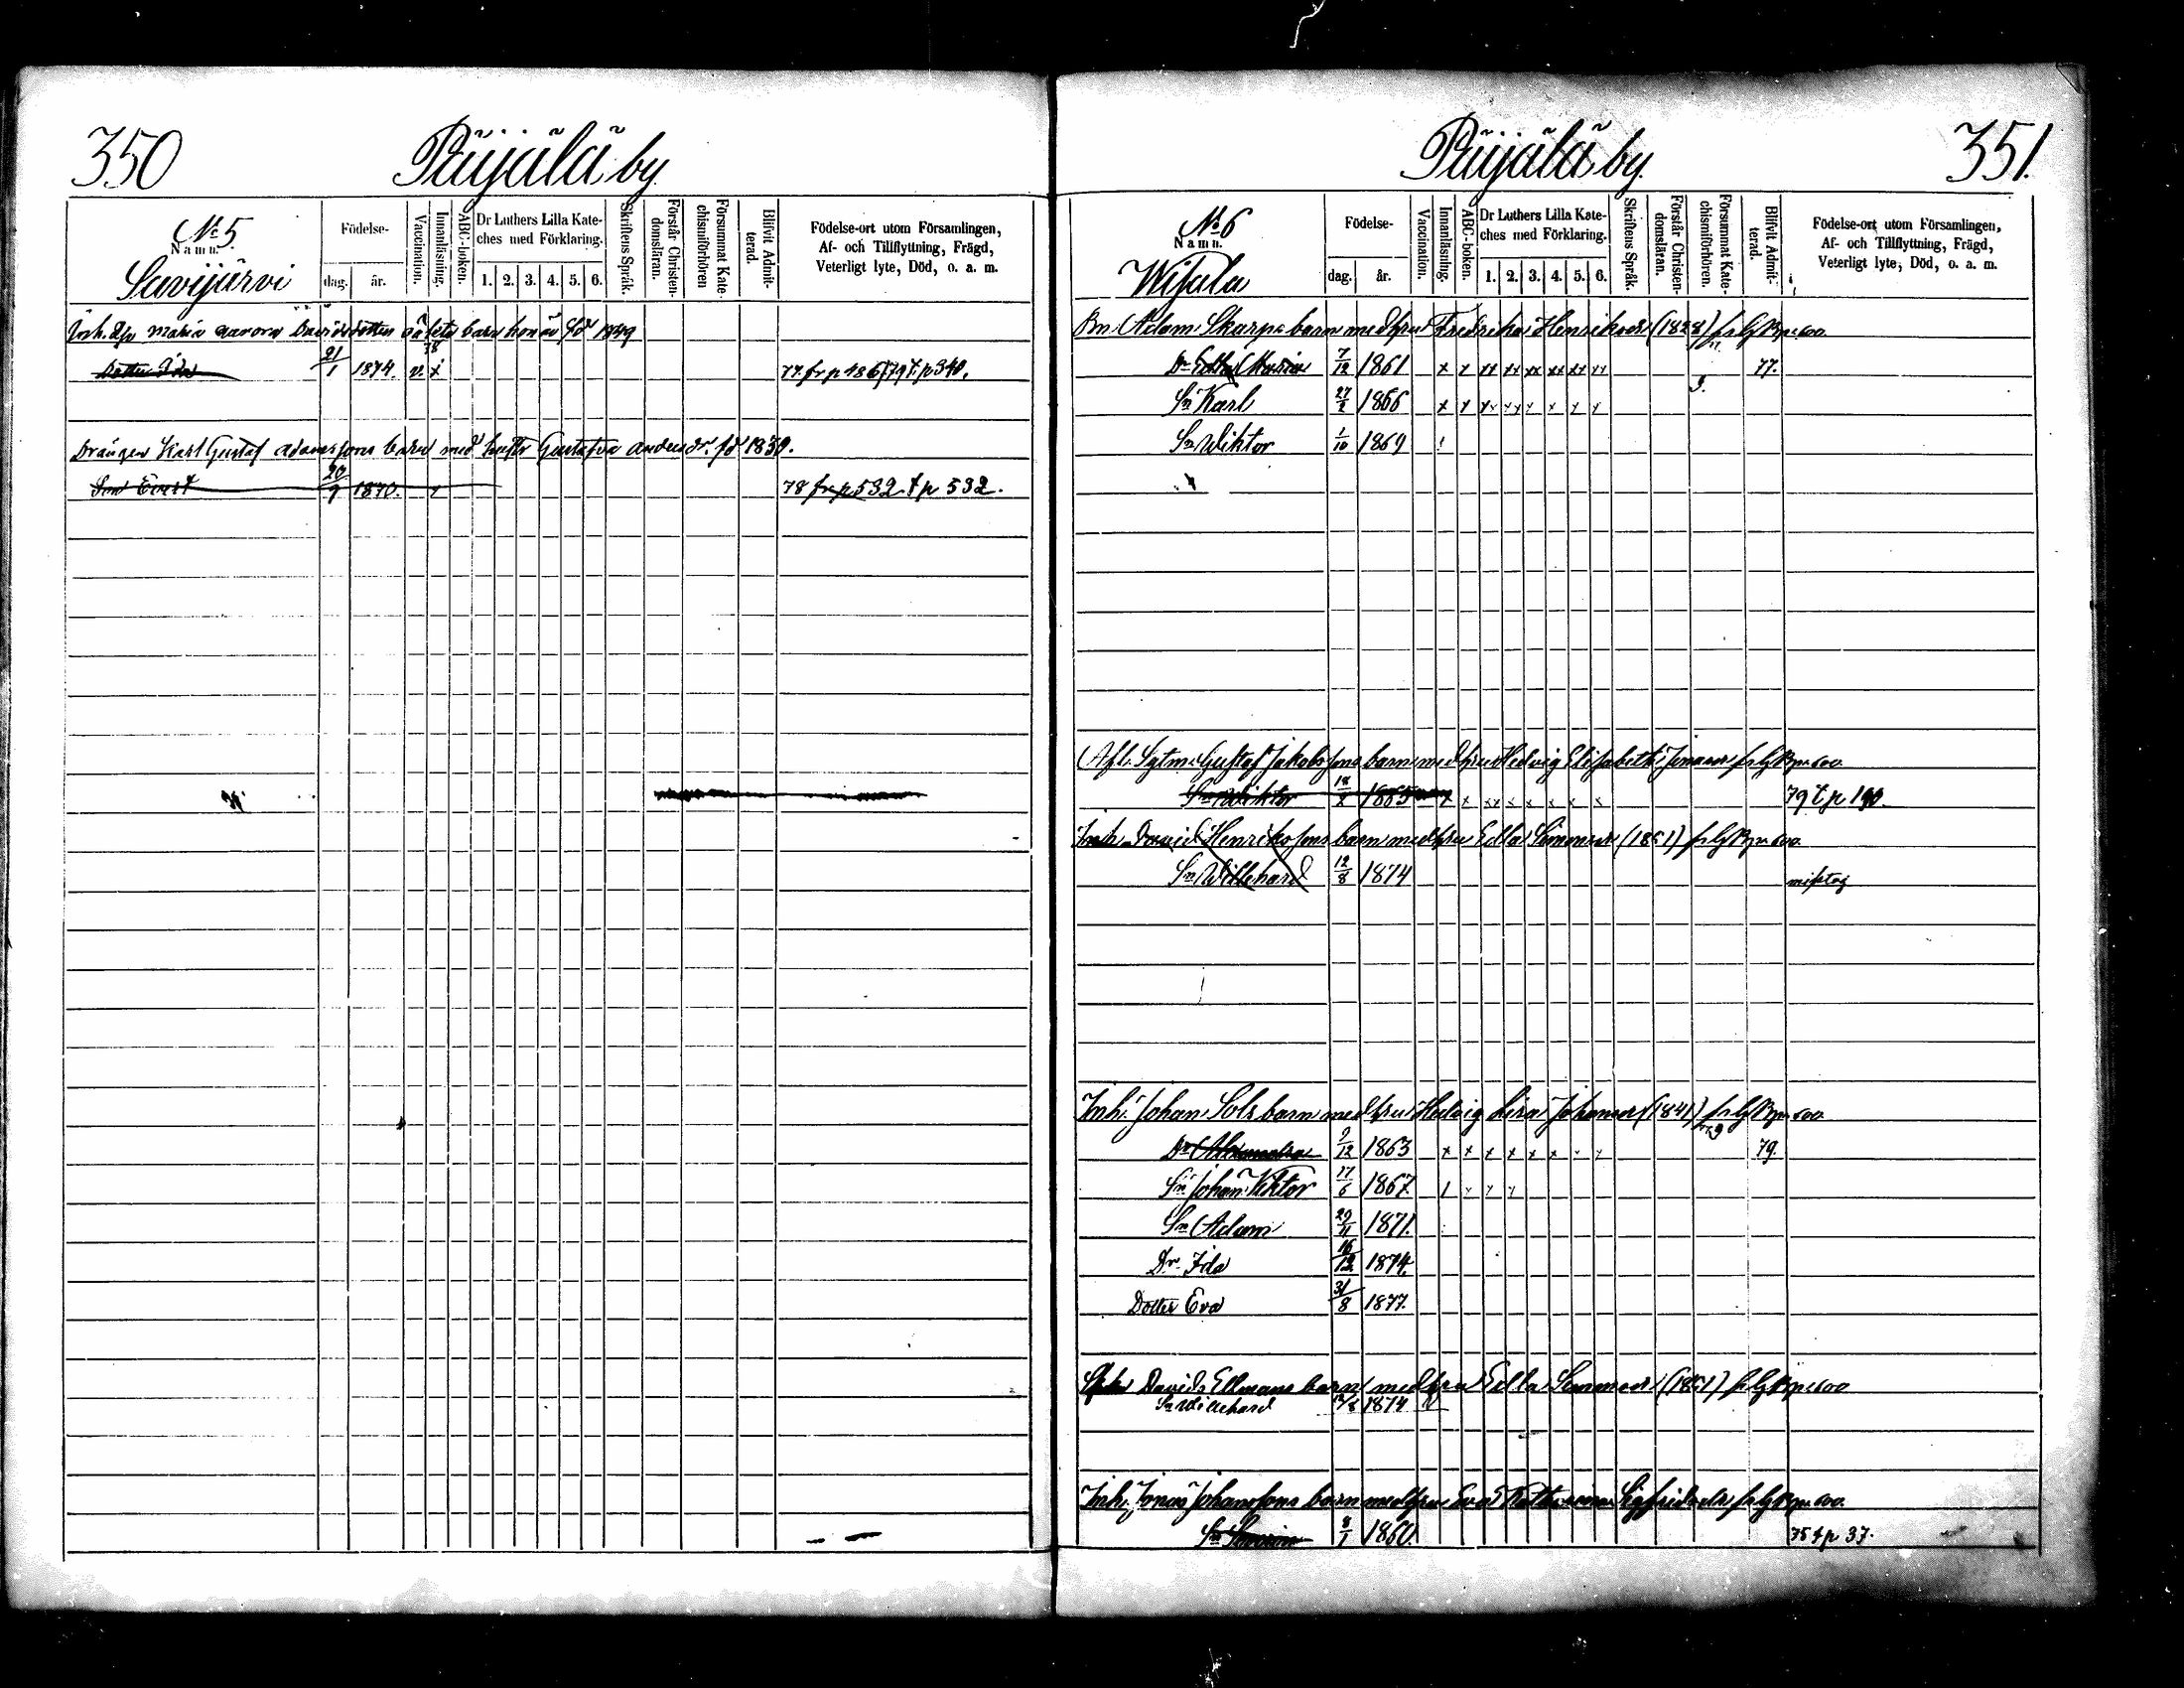 350 Päijälä by.
Nº 5
Namn.
Savijärvi
Födelse-
dag. år.
Vaccination.
Innanläsning.
ABC-boken.
Dr Luthers Lilla Kateches med Förklaring.
1. 2. 3. 4. 5. 6.
Skriftens Språk.
Förstår Christendomsläran.
Försummat Katechismiförhören
Blifvit Admitterad.
Födelse-ort utom Församlingen,
Af- och Tillflyttning, Frägd,
Veterligt lyte, Död, o. a. m.
Inh. Maria Aurora Davidsdotter barn hon är föd 1849
Dotter Ida 21/1 1874. v. x 77 fr p 486/79 t. p 340.
Drängen Karl Gustaf Adamssons barn med hustr Gustafva Andersdr. föd 1830.
Son Evert 20/9 1870. 78 fr p 532 t p 532.
Päijälä by. 351.
Nº 6
Namn.
Wijala
Födelse-
dag. år.
Vaccination.
Innanläsning.
ABC-boken.
Dr Luthers Lilla Kateches med Förklaring.
1. 2. 3. 4. 5. 6.
Skriftens Språk.
Förstår Christendomsläran.
Försummat Katechismiförhören.
Blifvit Admitterad.
Födelse-ort utom Församlingen,
Af- och Tillflyttning, Frägd,
Veterligt lyte, Död, o. a. m.
Bn. Adam Skarps barn med hru Fredrika Henriksdr (1828)
Dr Edla Maria 7/12 1861 x x xx xx xx xx xx xx 77.
Sn Karl 27/2 1866
Sn Wiktor 1/10 1869
Gustaf Jakobssons barn med hru Hedvig Elisabeth
Sn Wiktor 1865 79 t p 190.
Inh. David Henrikssons barn med hru Edla Simonsdr (1851)
Sn Willehard 12/8 1874 misstag
Inh. Johan Sols barn med hru Hedvig Lisa Johansdr (1841)
Dr Alexandra 9/12 1863 79.
Sn Johan Viktor 17/6 1867
Sn Adam 29/11 1871.
Dr Ida 16/12 1874.
Dotter Eva 31/8 1877.
Davids Ellmans barn med hru Edla Simonsdr (1851)
Sn Willehard 12/8 1874 v
Inh. Jonas Johanssons barn med hru Eva Katharina Sigfridsdr
Sn 8/1 1860. 75 t p 37.